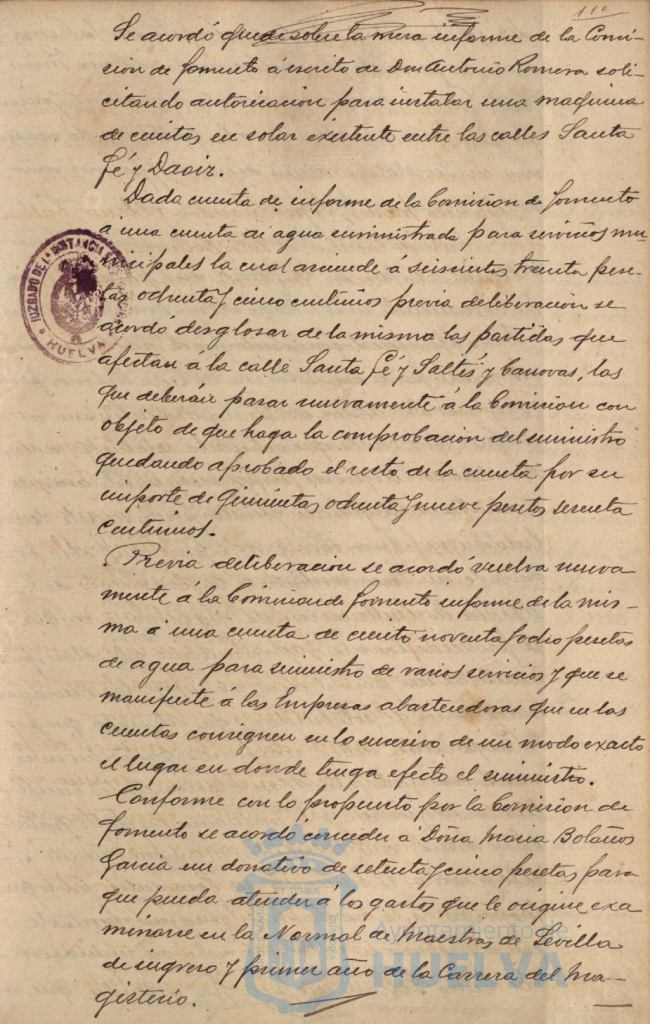 110
Se acordó quede sobre la mesa informe de la Comi-
sion de fomento á escrito de Don Antonio Romero soli-
citando autorizacion para instalar una maquina
de cunitas en solar existente entre las calles Santa
Fé y Daoiz.
Dada cuenta de informe de la Comision de fomento
á una cuenta de agua suministrada para servicios mu-
nicipales la cual asciende á seiscientas treinta pese-
tas ochenta y cinco centimos previa deliberacion se
acordó desglosar de la misma las partidas que
afectan á la calle Santa Fé y Saltés y Canovas, las
que deberán pasar nuevamente á la Comision con
objeto de que haga la comprobacion del suministro
quedando aprobado el resto de la cuenta por su
importe de quinientas ochenta y nueve pesetas sesenta
centimos.
Previa deliberacion se acordó vuelva nueva
mente á la Comision de fomento informe de la mis-
ma á una cuenta de ciento noventa y ocho pesetas
de agua para suministro de varios servicios y que se
manifieste á las Empresas abastecedoras que en las
cuentas consignen en lo sucesivo de un modo exacto
el lugar en donde tenga efecto el suministro.
Conforme con lo propuesto por la Comision de
fomento se acordó conceder á Doña Maria Bolaños
Garcia un donativo de setenta y cinco pesetas para
que pueda atender á los gastos que le origine exa
minarse en la Normal de Maestras de Sevilla
de ingreso y primer año de la Carrera del Ma-
gisterio.
JUZGADO DE 1ª INSTANCIA
HUELVA
Ayuntamiento de
HUELVA